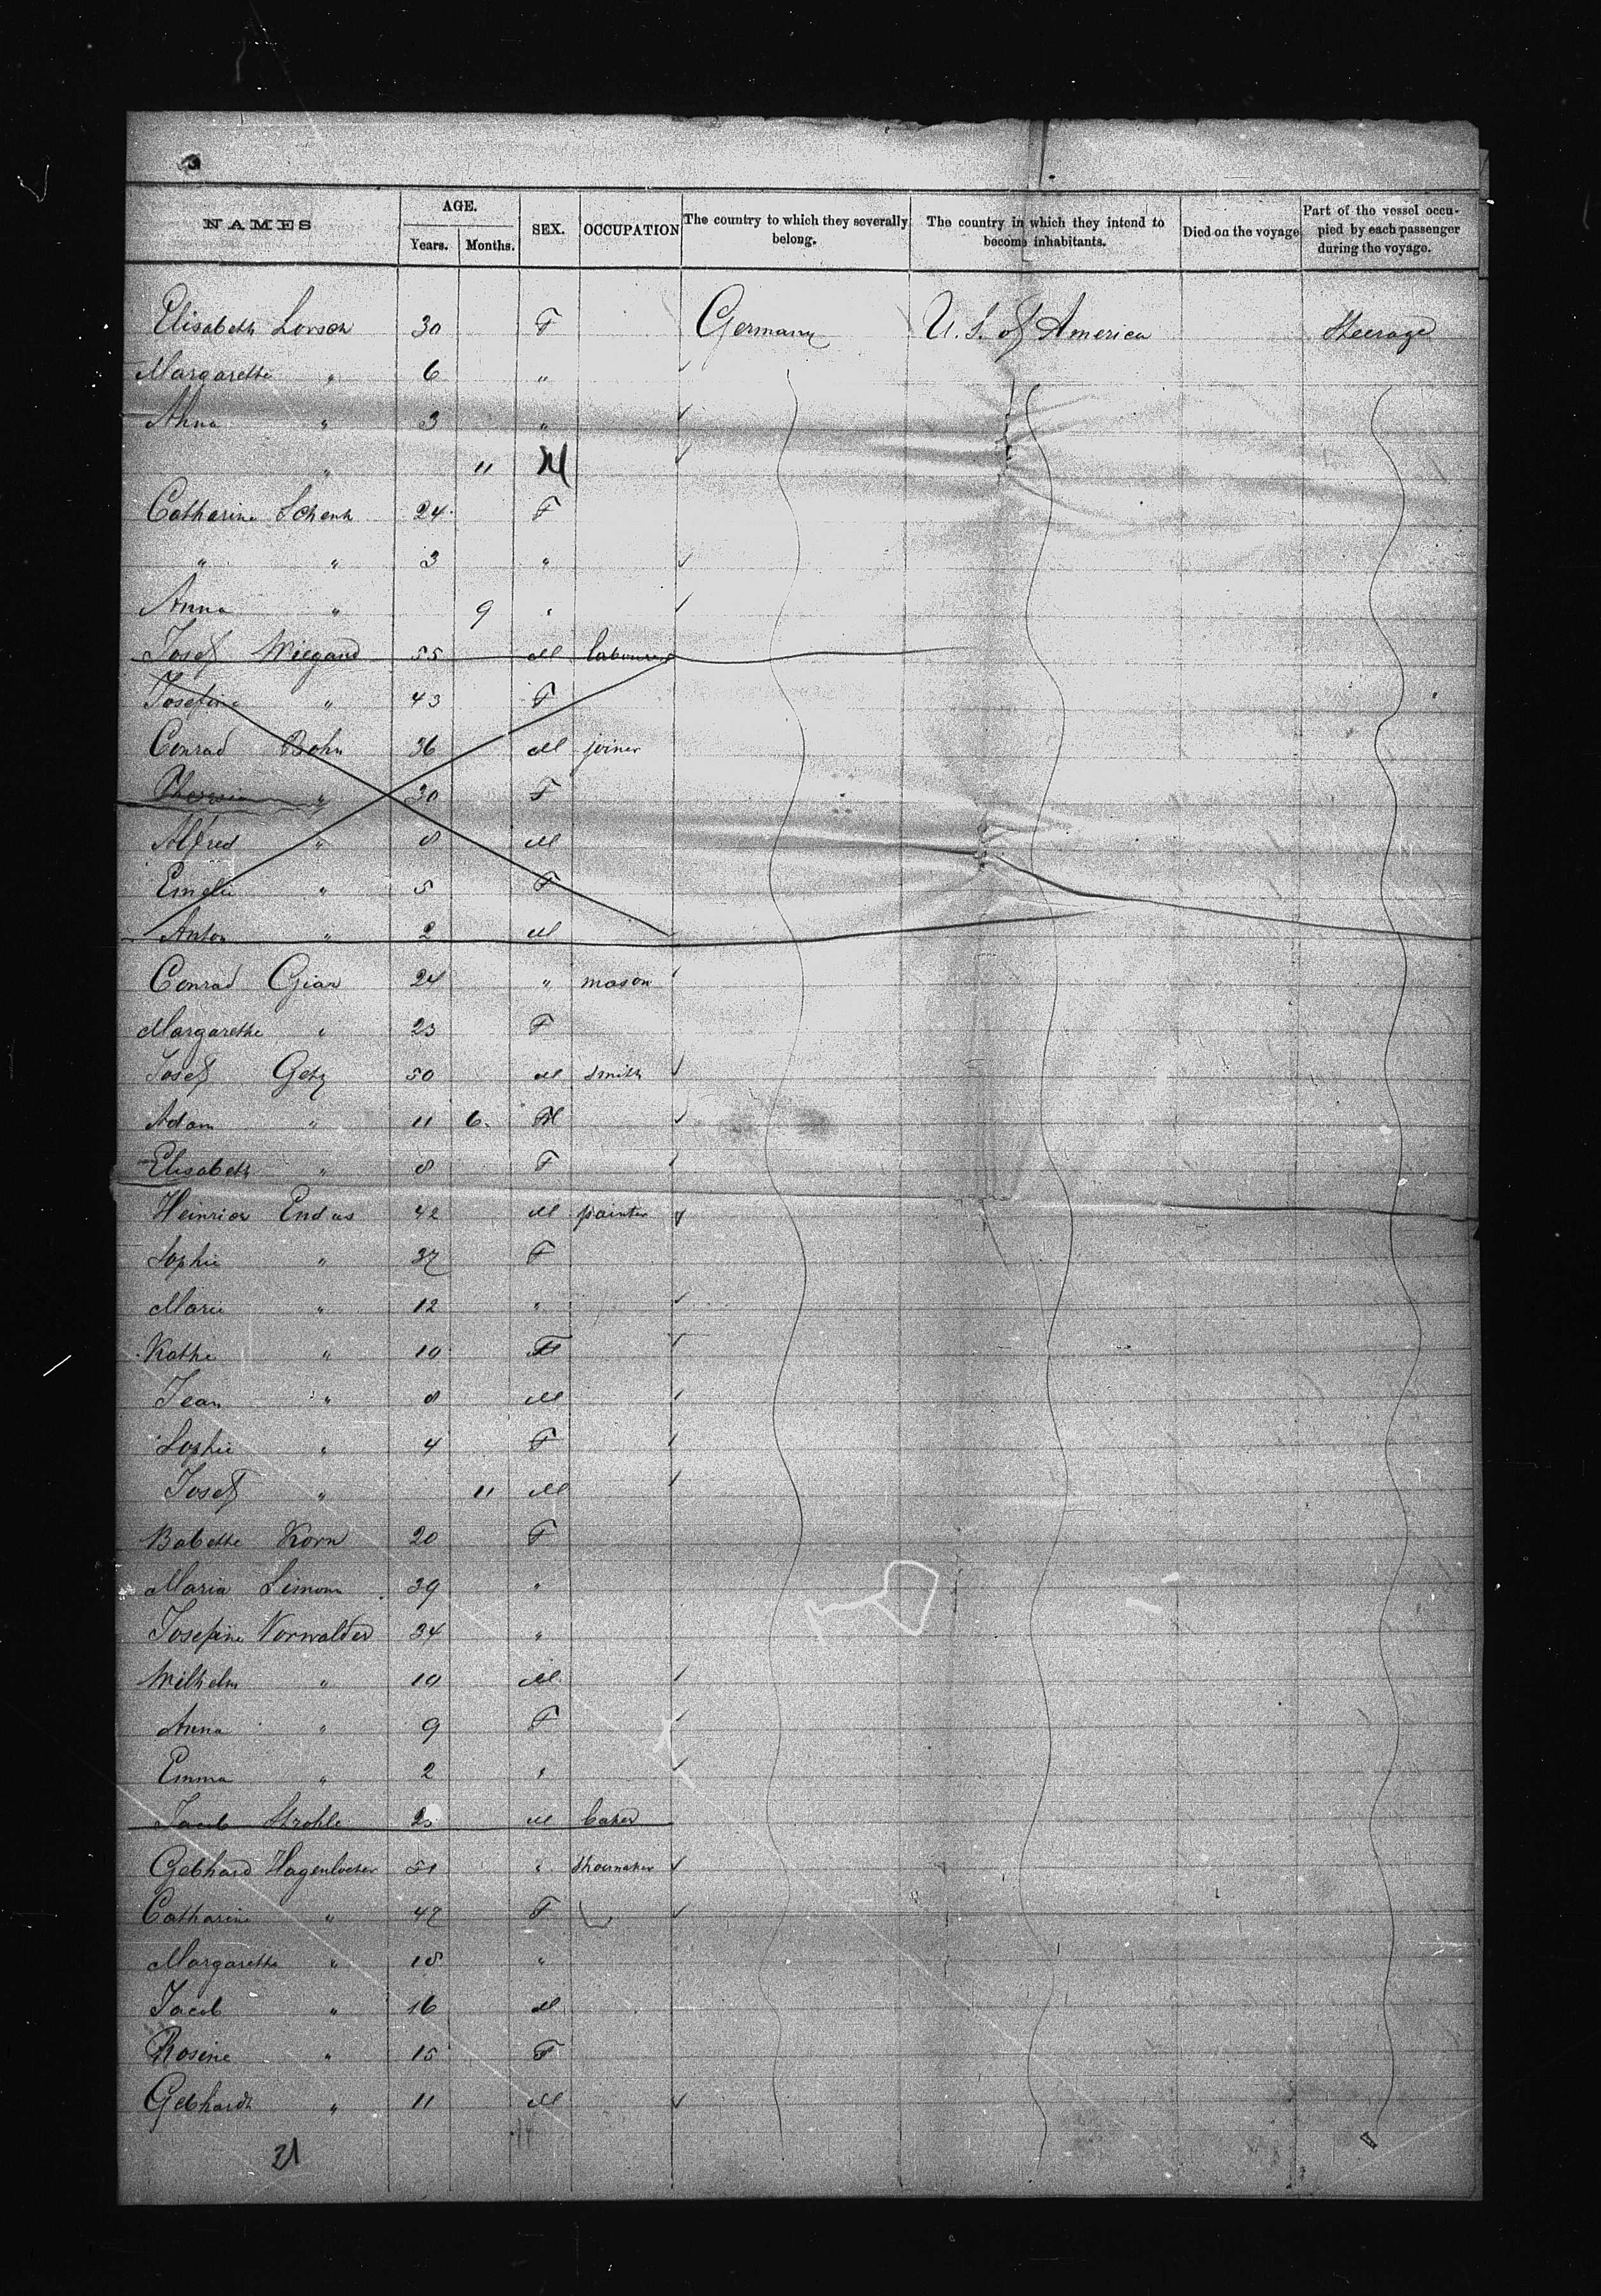 NAMES AGE. Years. Months. SEX. OCCUPATION The country to which they severally belong. The country in which they intend to become inhabitants. Died on the voyage Part of the vessel occupied by each passenger during the voyage.
Elisabeth Lorsch 30 F Germany U. S. of America Steerage
Margarethe " 6 "
Anna " 3 "
" 11 M
Catharine Schenk 24 F
" " 3 "
Anna " 9 "
Josef Wiegand 55 M labourer
Josefine " 43 F
Conrad Bohn 36 M joiner
" 30 F
Alfred " 8 M
Emelie " 5 F
Anton " 2 M
Conrad Gian 24 " mason
Margarethe " 23 F
Josef Getz 50 M smith
Adam " 11 6. M
Elisabeth " 8 F
Heinrich Endus 42 M painter
Sophie " 37 F
Marie " 12 "
Kathe " 10 F
Jean " 8 M
Sophie " 4 F
Josef " 11 M
Babette Korn 20 F
Maria Simon 39 "
Josefine Vorwalder 34 "
Wilhelm " 10 M
Anna " 9 F
Emma " 2 "
Jacob Strohle 25 M baker
Gebhard Hagenlocher 51 " shoemaker
Catharine " 47 F
Margarethe " 18 "
Jacob " 16 M
Rosine " 15 F
Gebhardt " 11 M
21